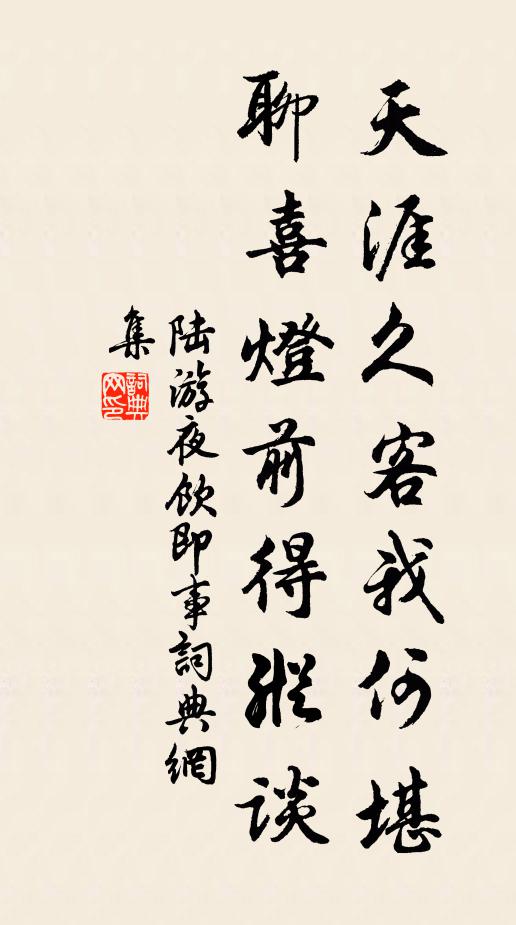 天涯久客我何堪
聊喜燈前得縱談
陆游夜飲即事詞典網
集
詞典网印